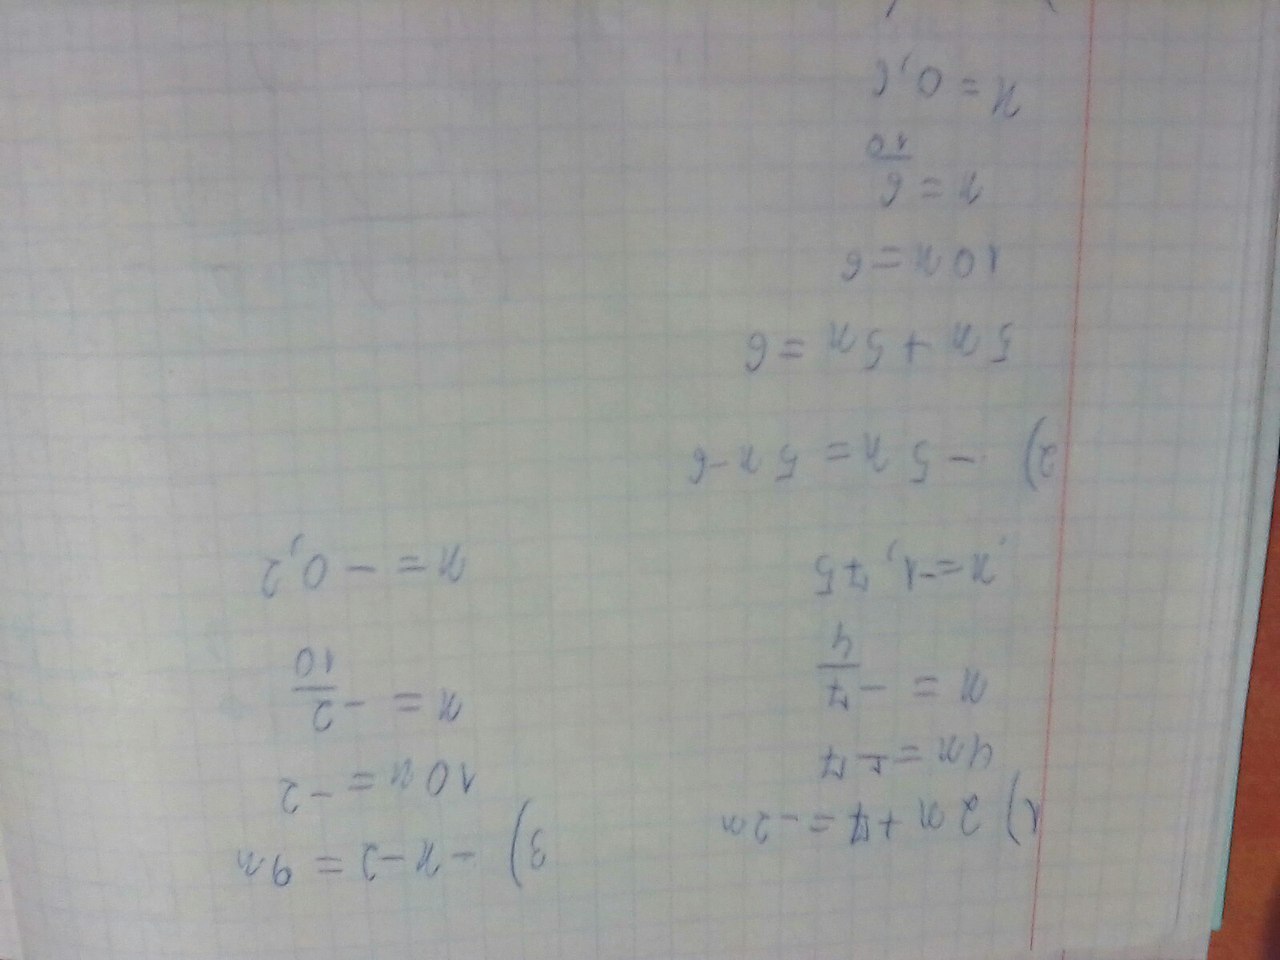 1) 2x + 7 = -2x
4x = -7
x = -7/4
x = -1,75
2) -5x = 5x - 6
5x + 5x = 6
10x = 6
x = 6/10
x = 0,6
3) -x - 2 = 9x
10x = -2
x = -2/10
x = -0,2